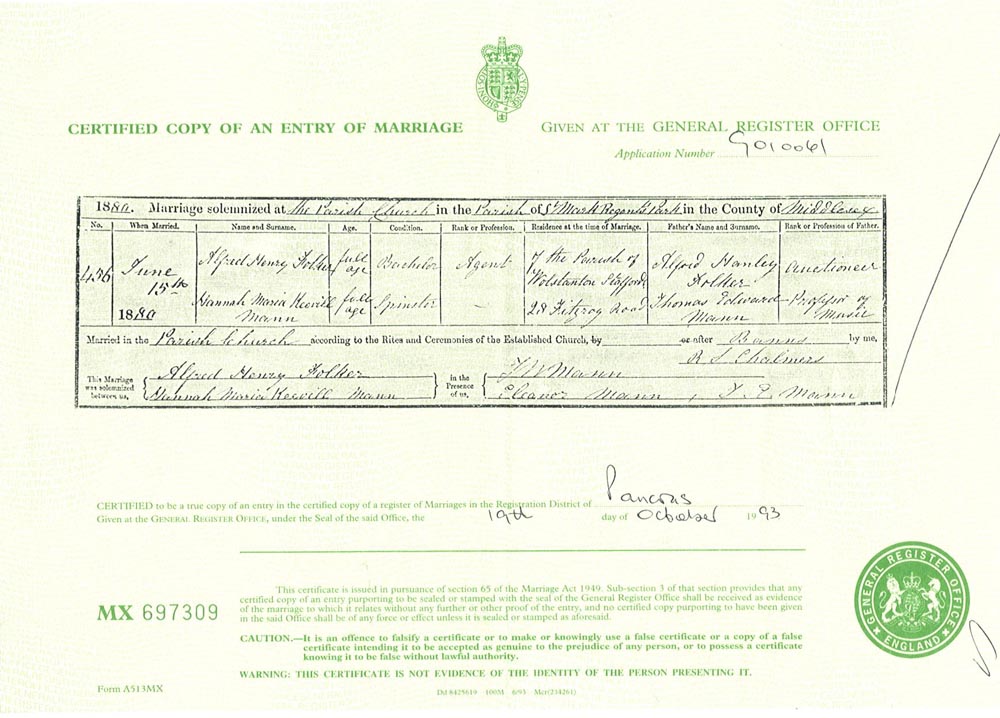 CERTIFIED COPY OF AN ENTRY OF MARRIAGE
GIVEN AT THE GENERAL REGISTER OFFICE
Application Number G010061
1880. Marriage solemnized at the Parish Church in the Parish of St Mark Regents Park in the County of Middlesex
No. When Married. Name and Surname. Age. Condition. Rank or Profession. Residence at the time of Marriage. Father's Name and Surname. Rank or Profession of Father.
Alfred Henry Folker full age Bachelor Agent of the Parish of Wolstanton Stafford Alfred Hanley Folker Auctioneer
June 15th 1880
Hannah Maria Keevill Mann full age Spinster – 28 Fitzroy Road Thomas Edward Mann Professor of Music
Married in the Parish Church according to the Rites and Ceremonies of the Established Church, by or after Banns by me,
R S Chalmers
This Marriage was solemnized between us, Alfred Henry Folker
Hannah Maria Keevill Mann
in the Presence of us, Mann
Eleanor Mann, T. E. Mann
CERTIFIED to be a true copy of an entry in the certified copy of a register of Marriages in the Registration District of Pancras
Given at the GENERAL REGISTER OFFICE, under the Seal of the said Office, the 19th day of October 1993
This certificate is issued in pursuance of section 65 of the Marriage Act 1949. Sub-section 3 of that section provides that any
certified copy of an entry purporting to be sealed or stamped with the seal of the General Register Office shall be received as evidence
of the marriage to which it relates without any further or other proof of the entry, and no certified copy purporting to have been given
in the said Office shall be of any force or effect unless it is sealed or stamped as aforesaid.
MX 697309
CAUTION.—It is an offence to falsify a certificate or to make or knowingly use a false certificate or a copy of a false
certificate intending it to be accepted as genuine to the prejudice of any person, or to possess a certificate
knowing it to be false without lawful authority.
WARNING: THIS CERTIFICATE IS NOT EVIDENCE OF THE IDENTITY OF THE PERSON PRESENTING IT.
Form A513MX
Dd 8425619 100M 6/93 Mcr(234261)
GENERAL REGISTER OFFICE
ENGLAND